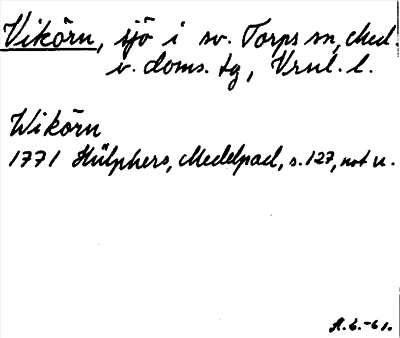 Vikörn, sjö i sv. Torps sn, Med.
v. doms. tg, Vrnl. l.
Wikörn
1771 Hülphers, Medelpad, s. 127, not u.
A.L.-61.